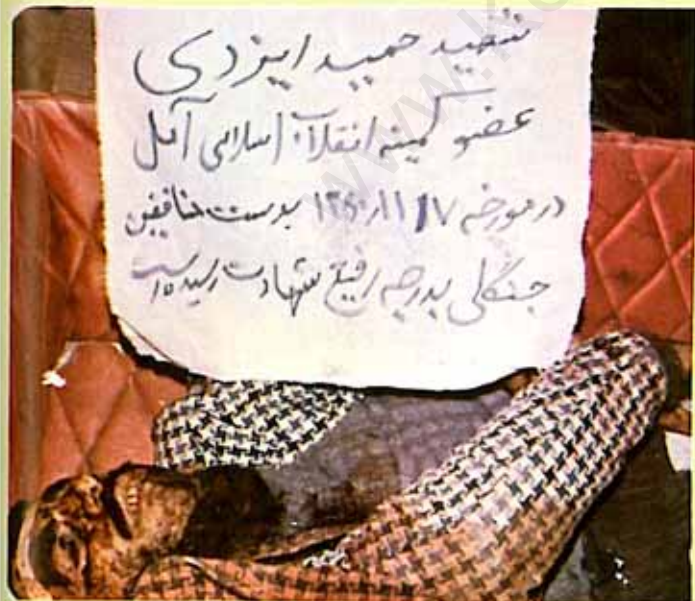 شهید حمید ایزدی
عضو کمیته انقلاب اسلامی آمل
در مورخه ۱۷/۱۱/۱۳۶۰ بدست منافقین
جنگلی بدرجه رفیع شهادت رسیده است